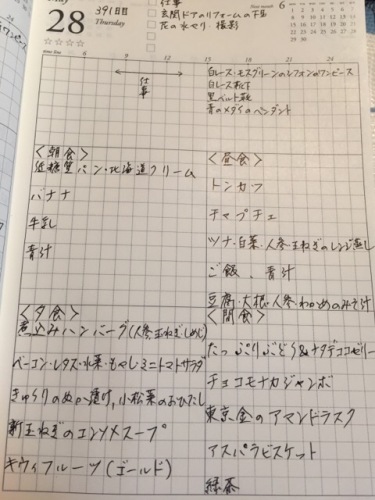 28
Thursday
391日目
仕事
玄関ドアのリフォームの下見
花の水やり 撮影
6
6
9
12
15
18
21
24
仕事
白レース・モスグリーンのシフォンのワンピース
白レース靴下
黒ベルト靴
青のメダイのペンダント
<朝食>
低糖質パン・北海道クリーム
バナナ
牛乳
青汁
<昼食>
トンカツ
チャプチェ
ツナ・白菜・人参・玉ねぎのレンジ蒸し
ご飯、青汁
豆腐・大根・人参・わかめのみそ汁
<夕食>
煮込みハンバーグ(人参、玉ねぎ・しめじ)
ベーコン・レタス・水菜・もやし・ミニトマトサラダ
きゅうりのぬか漬け、小松菜のおひたし
新玉ねぎのコンソメスープ
キウィフルーツ(ゴールド)
<間食>
たっぷりぶどう&ナタデココゼリー
チョコモナカジャンボ
東京金のアマンドラスク
アスパラビスケット
緑茶